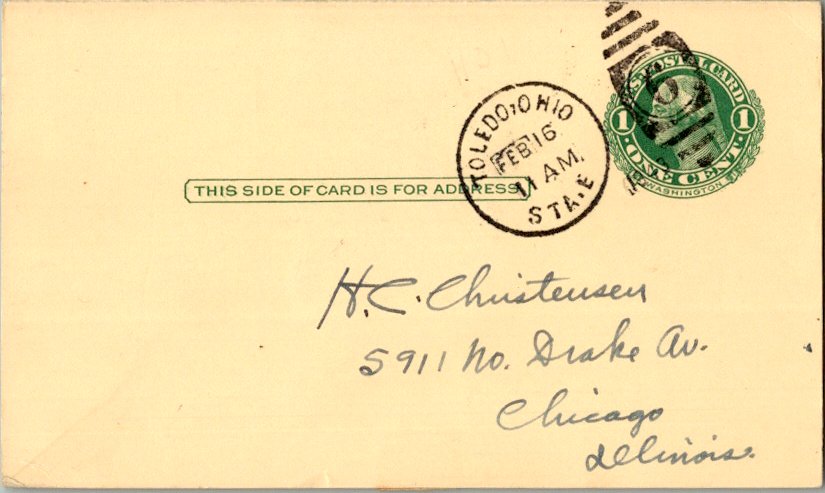 U.S. POSTAL CARD
1 1
ONE CENT
WASHINGTON
TOLEDO, OHIO
FEB 16
11 AM
STA. E
THIS SIDE OF CARD IS FOR ADDRESS
H. C. Christensen
5911 No. Drake Av.
Chicago
Illinois.